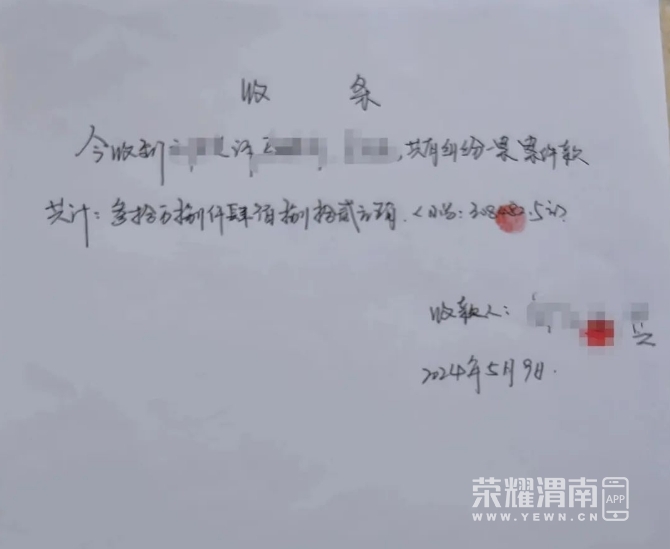 收 条
今收到 诉 , 共有纠纷一案案件款
共计:叁拾万捌仟肆佰捌拾贰元 (小写:308 .5元)
收款人:
2024年5月9日.
荣耀渭南 APP
WWW.YEWN.CN